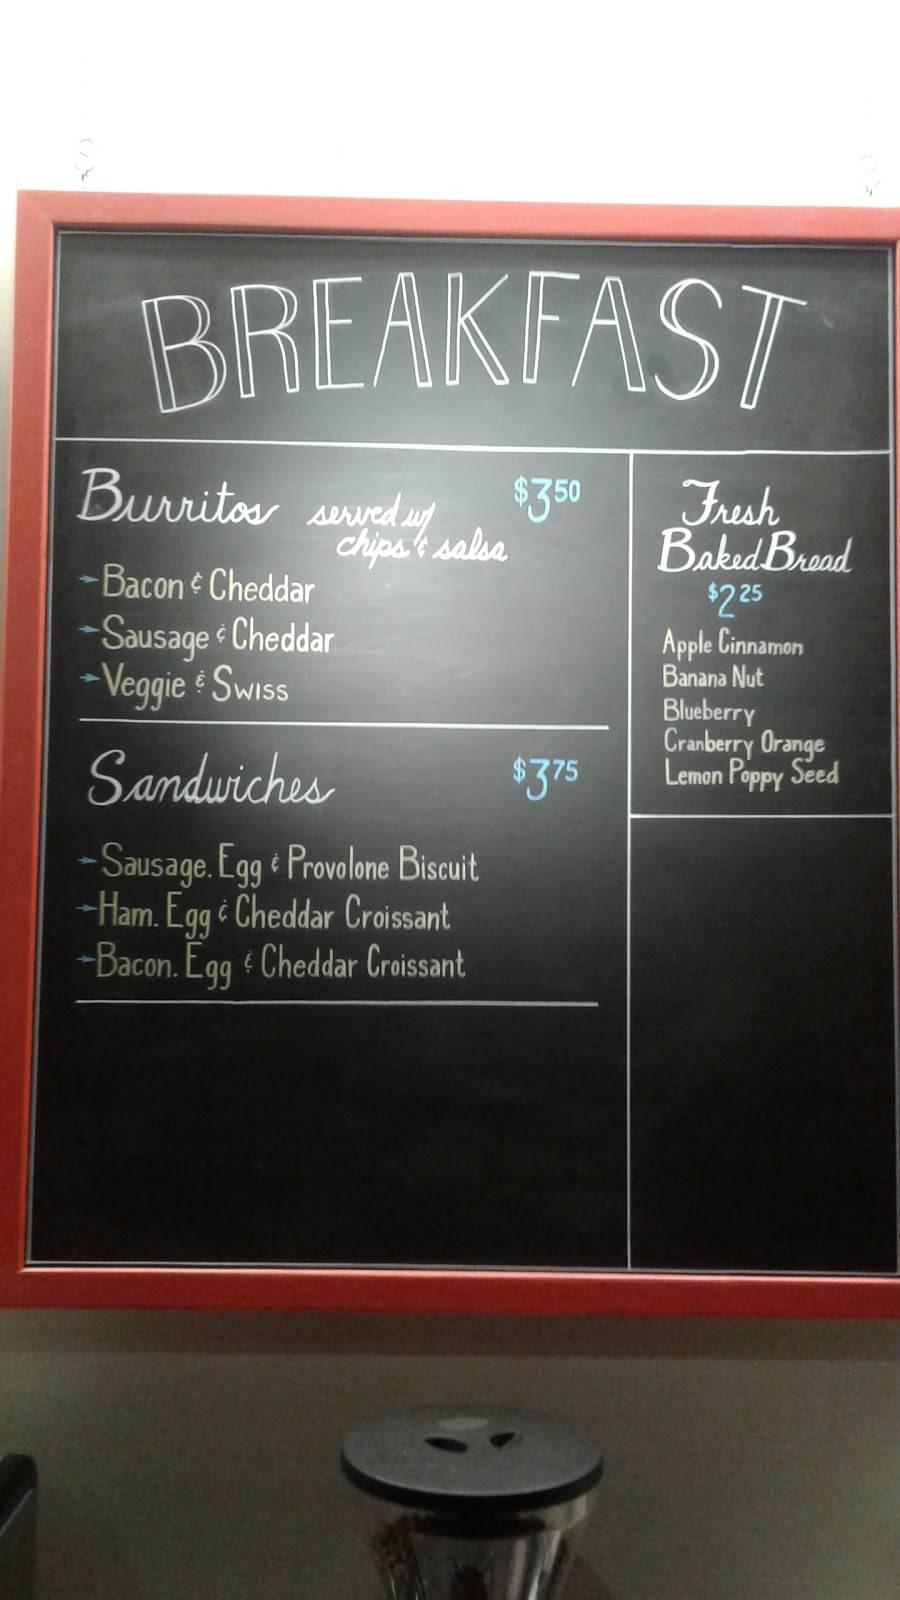 BREAKFAST
Burritos served w/ $3.50
chips & salsa
Bacon & Cheddar
Sausage & Cheddar
Veggie & Swiss
Sandwiches $3.75
Sausage. Egg & Provolone Biscuit
Ham. Egg & Cheddar Croissant
Bacon. Egg & Cheddar Croissant
Fresh
Baked Bread
$2.25
Apple Cinnamon
Banana Nut
Blueberry
Cranberry Orange
Lemon Poppy Seed